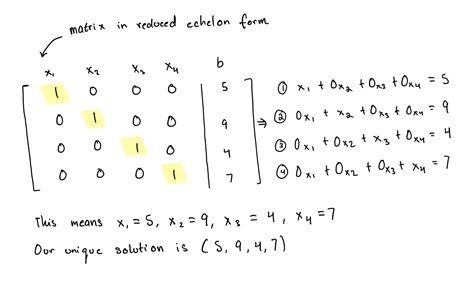 matrix in reduced echelon form
x₁ x₂ x₃ x₄ b
1 0 0 0 5
0 1 0 0 9
0 0 1 0 4
0 0 0 1 7
⇒
① x₁ + 0x₂ + 0x₃ + 0x₄ = 5
② 0x₁ + x₂ + 0x₃ + 0x₄ = 9
③ 0x₁ + 0x₂ + x₃ + 0x₄ = 4
④ 0x₁ + 0x₂ + 0x₃ + x₄ = 7
This means x₁ = 5, x₂ = 9, x₃ = 4, x₄ = 7
Our unique solution is (5, 9, 4, 7)